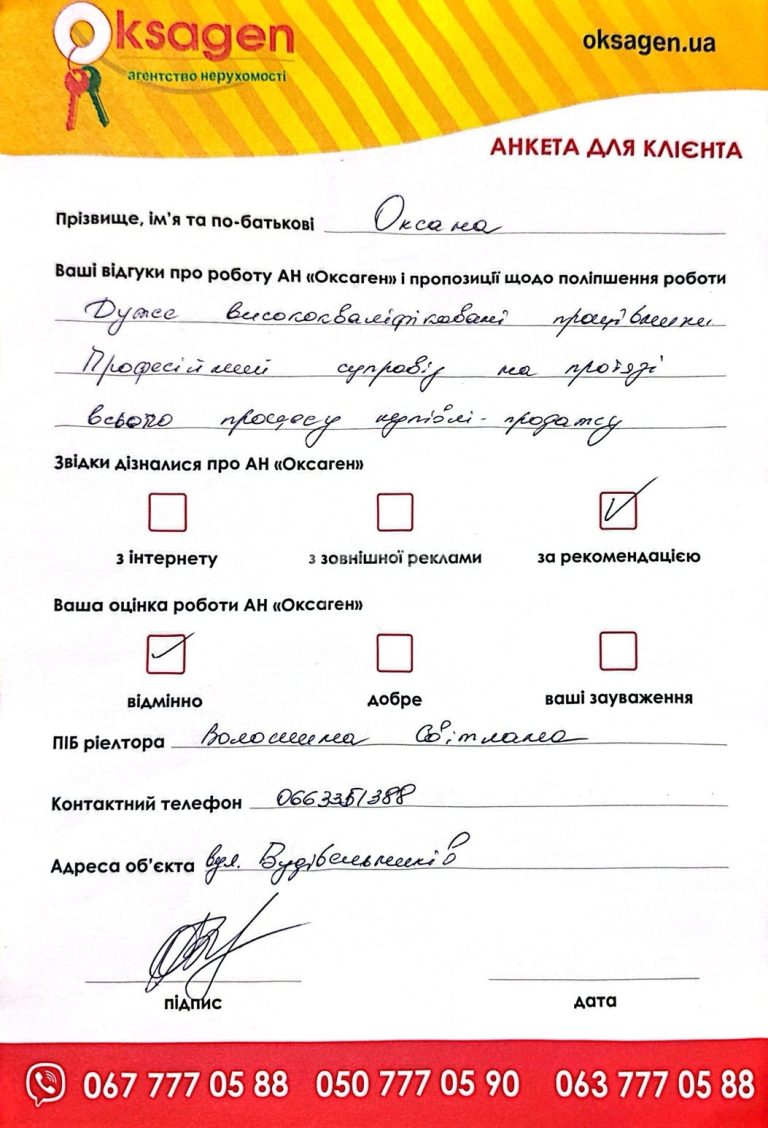 Oksagen
агентство нерухомості
oksagen.ua
АНКЕТА ДЛЯ КЛІЄНТА
Прізвище, ім'я та по-батькові Оксана
Ваші відгуки про роботу АН «Оксаген» і пропозиції щодо поліпшення роботи
Дуже висококваліфіковані працівники.
Професійний супровід на протязі
всього процесу купівлі-продажу
Звідки дізналися про АН «Оксаген»
з інтернету з зовнішної реклами за рекомендацією
Ваша оцінка роботи АН «Оксаген»
відмінно добре ваші зауваження
ПІБ ріелтора Волошина Світлана
Контактний телефон 0663351388
Адреса об'єкта вул. Будівельників
підпис дата
067 777 05 88 050 777 05 90 063 777 05 88